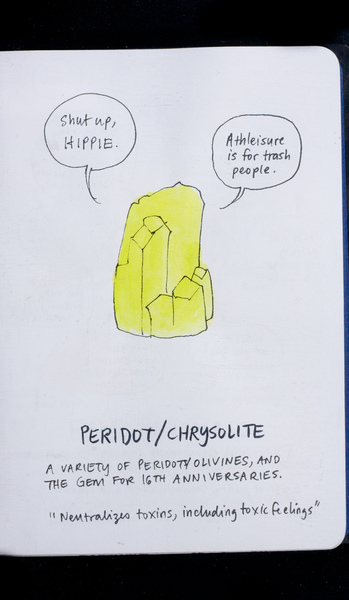 Shut up,
HIPPIE.
Athleisure
is for trash
people.
PERIDOT/CHRYSOLITE
A VARIETY OF PERIDOTS/OLIVINES, AND
THE GEM FOR 16TH ANNIVERSARIES.
"Neutralizes toxins, including toxic feelings"